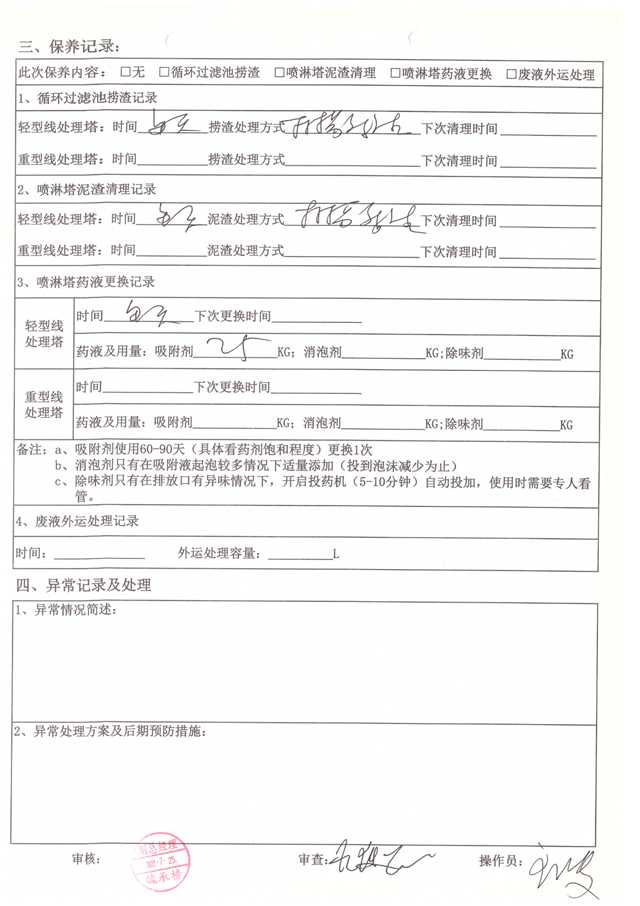 三、保养记录:
此次保养内容: □无 □循环过滤池捞渣 □喷淋塔泥渣清理 □喷淋塔药液更换 □废液外运处理
1、循环过滤池捞渣记录
轻型线处理塔: 时间________捞渣处理方式________下次清理时间________
重型线处理塔: 时间________捞渣处理方式________下次清理时间________
2、喷淋塔泥渣清理记录
轻型线处理塔: 时间________泥渣处理方式________下次清理时间________
重型线处理塔: 时间________泥渣处理方式________下次清理时间________
3、喷淋塔药液更换记录
轻型线处理塔
时间________下次更换时间________
药液及用量: 吸附剂 25 KG; 消泡剂________KG;除味剂________KG
重型线处理塔
时间________下次更换时间________
药液及用量: 吸附剂________KG; 消泡剂________KG;除味剂________KG
备注: a、吸附剂使用60-90天(具体看药剂饱和程度)更换1次
b、消泡剂只有在吸附液起泡较多情况下适量添加(投到泡沫减少为止)
c、除味剂只有在排放口有异味情况下, 开启投药机(5-10分钟)自动投加, 使用时需要专人看
管。
4、废液外运处理记录
时间: ________ 外运处理容量: ________L
四、异常记录及处理
1、异常情况简述:
2、异常处理方案及后期预防措施:
审核: 审查: 操作员: